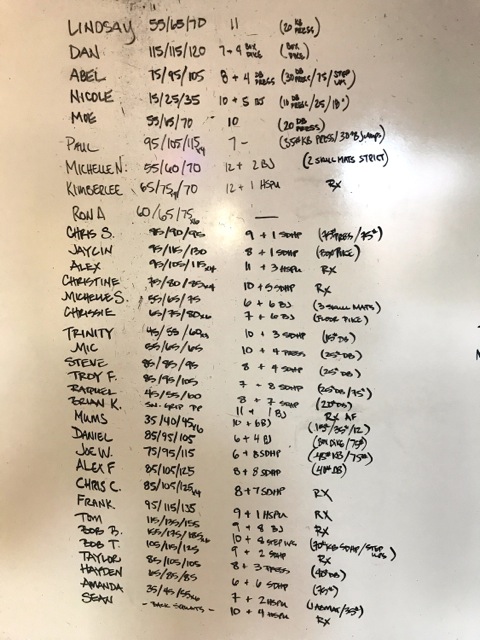 LINDSAY 55/65/70 11 (20 KB PRESS)
DAN 115/115/120 7+4 BOX PIKE (BOX PIKE)
ABEL 75/95/105 8+4 DB PRESS (30 DB PRESS/75/STEP UPS)
NICOLE 15/25/35 10+5 BJ (10 DB PRESS/25/18")
MOE 55/65/70 10 (20 DB PRESS)
PAUL 95/105/115x4 7 - (35# KB PRESS/30# JUMPS)
MICHELLE N. 55/60/70 12+2 BJ (2 SKULL MATS STRICT)
KIMBERLEE 65/75/70 12+1 HSPU RX
RON A 60/65/75x6 —
CHRIS S. 85/90/95 9+1 SDHP (PRESS/75#)
JAYLIN 95/115/130 8+1 SDHP (BOX PIKE)
ALEX 95/105/115x4 11+3 HSPU RX
CHRISTINE 75/80/85x4 10+5 SDHP RX
MICHELLE S. 55/65/75 6+6 BJ (3 SKULL MATS)
CHRISSIE 65/75/80x6 7+6 BJ (FLOOR PIKE)
TRINITY 45/55/60 10+3 SDHP (15# DB)
MIC 55/65/65 10+4 PRESS (25# DB)
STEVE 85/85/95 8+4 SDHP (25# DB)
TROY F. 85/95/105 7-8 SDHP (25# DB/75#)
RAQUEL 45/55/60 8+7 SDHP (20# DB)
BRIAN K. SN. GRIP PP 11+1 BJ RX AF
MUMS 35/40/45x6 10+6 BJ (/35#/12)
DANIEL 85/95/105 6+4 BJ (BOX PIKE/75#)
JOE W. 75/95/115 6+8 SDHP (KB/75#)
ALEX F 85/105/125 8+8 SDHP (DB)
CHRIS C. 85/105/125x4 8+7 SDHP RX
FRANK 95/115/135 9+1 HSPU RX
TOM 115/135/155 9+8 BJ RX
BOB B. 10+8 STEP UPS (KB SDHP/STEP UPS)
BOB T. 105/115/125 9+2 SDHP RX
TAYLOR 85/105/105 8+3 PRESS (40# DB)
HAYDEN 65/85/85 6+6 SDHP (75#)
AMANDA 35/45/55x6 7+2 HSPU (1 ABMAT/35#)
SEAN - BACK SQUATS - 10+4 HSPU RX